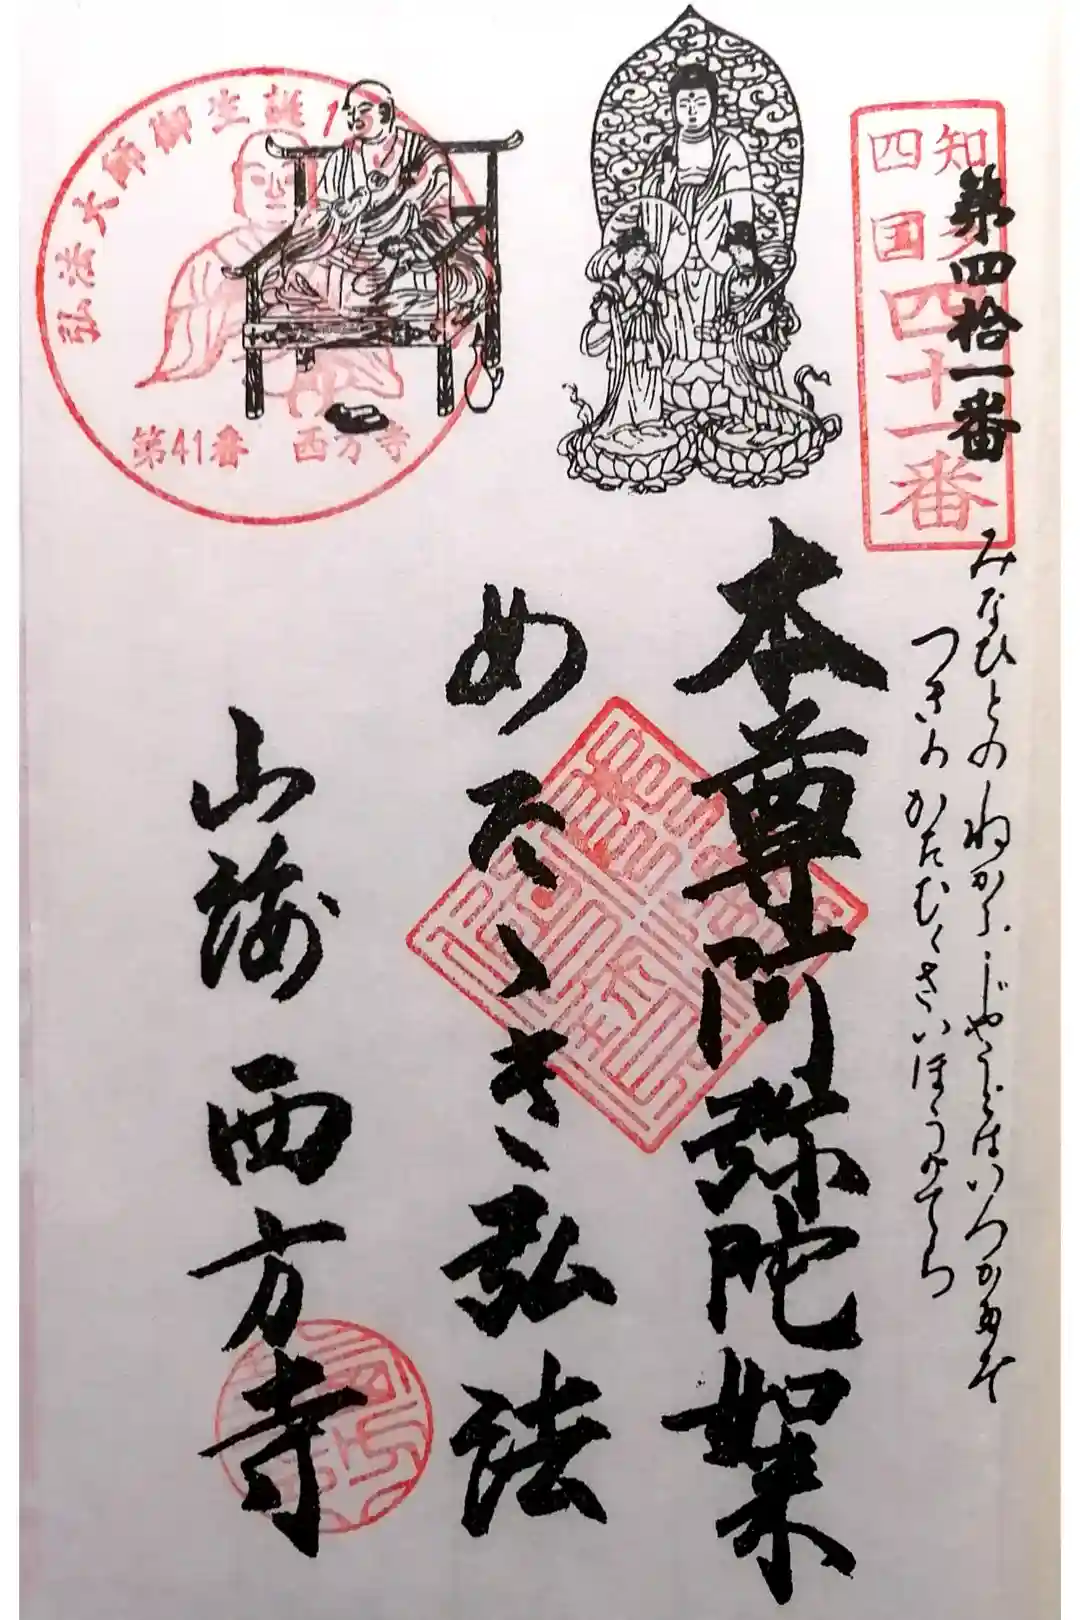 知多
四国
四十一番
第四拾一番
みなひとのねかふじやうどはいつかたぞ
つきのかたむくさいほうのてら
本尊阿弥陀如来
めたゝき弘法
山海 西方寺
弘法大師御生誕1
第41番 西方寺